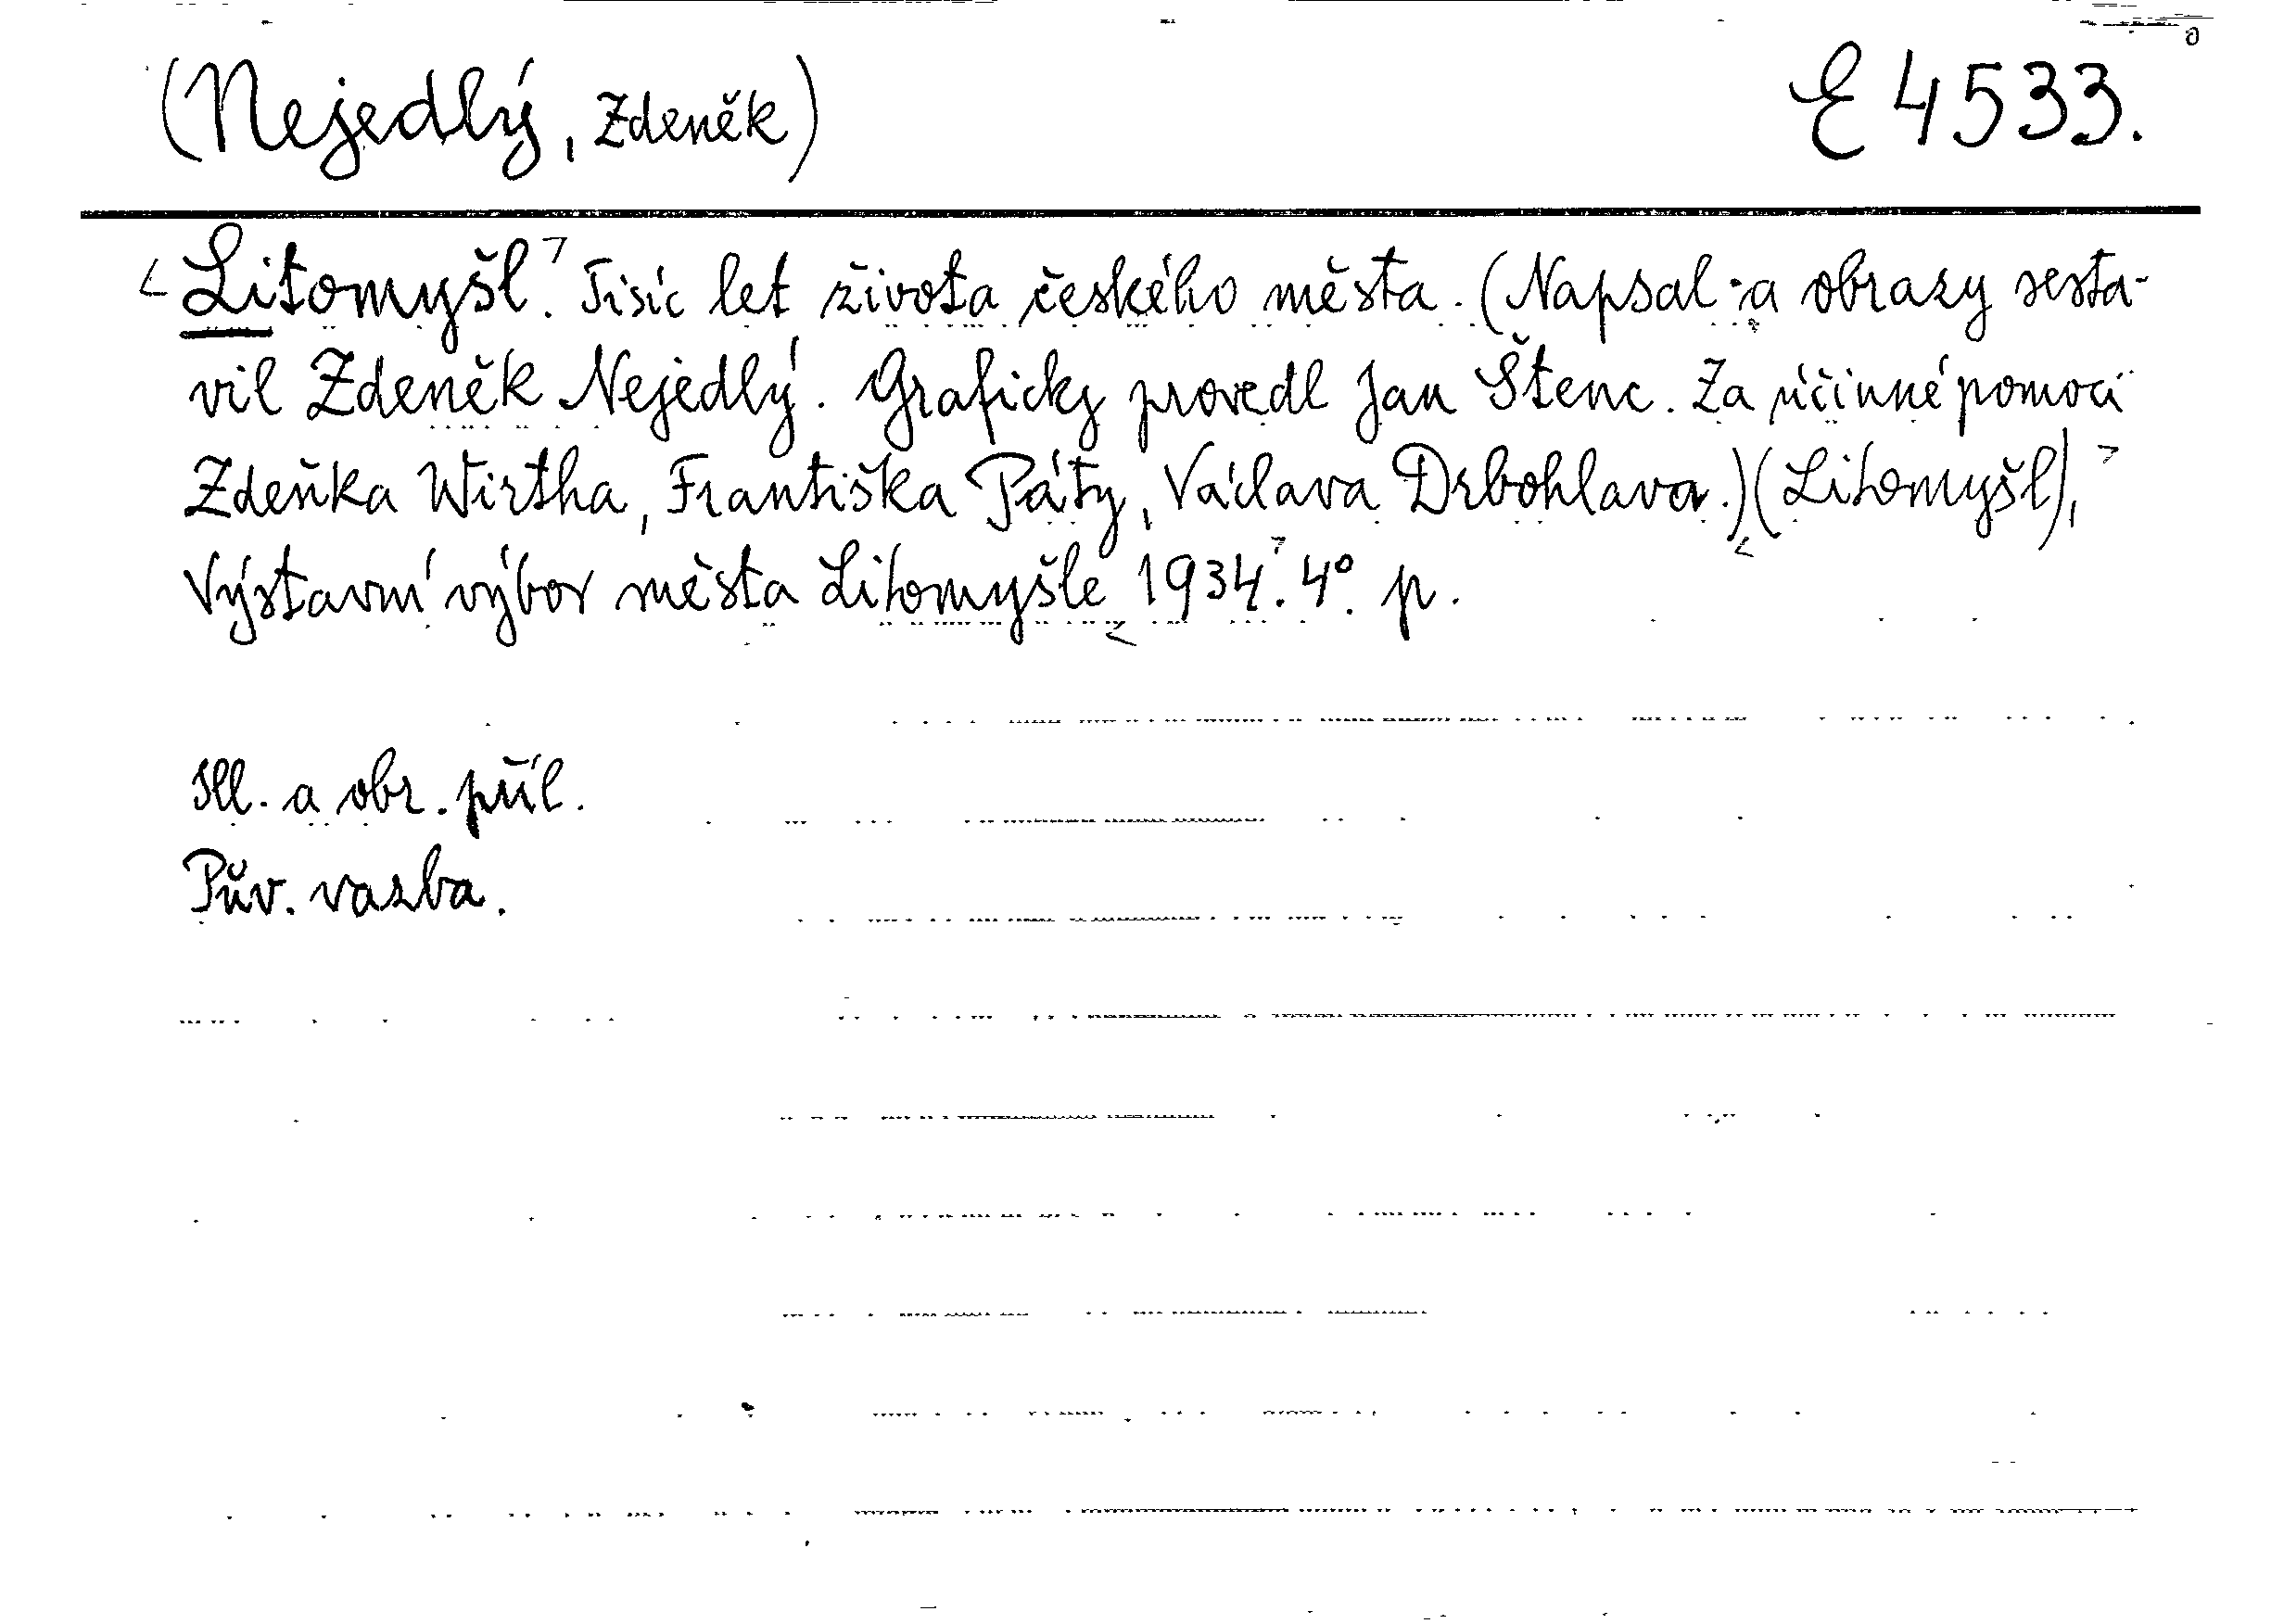 (Nejedlý, Zdeněk) E 4533.
<Litomyšl.> Tisíc let života českého města. (Napsal a obrazy sesta-
vil Zdeněk Nejedlý. Graficky provedl Jan Štenc. Za účinné pomoci
Zdeňka Wirtha, Františka Páty, Václava Drbohlava.) (Litomyšl),
Výstavní výbor města Litomyšle 1934. 4°. p.
Ill. a obr. příl.
Pův. vazba.